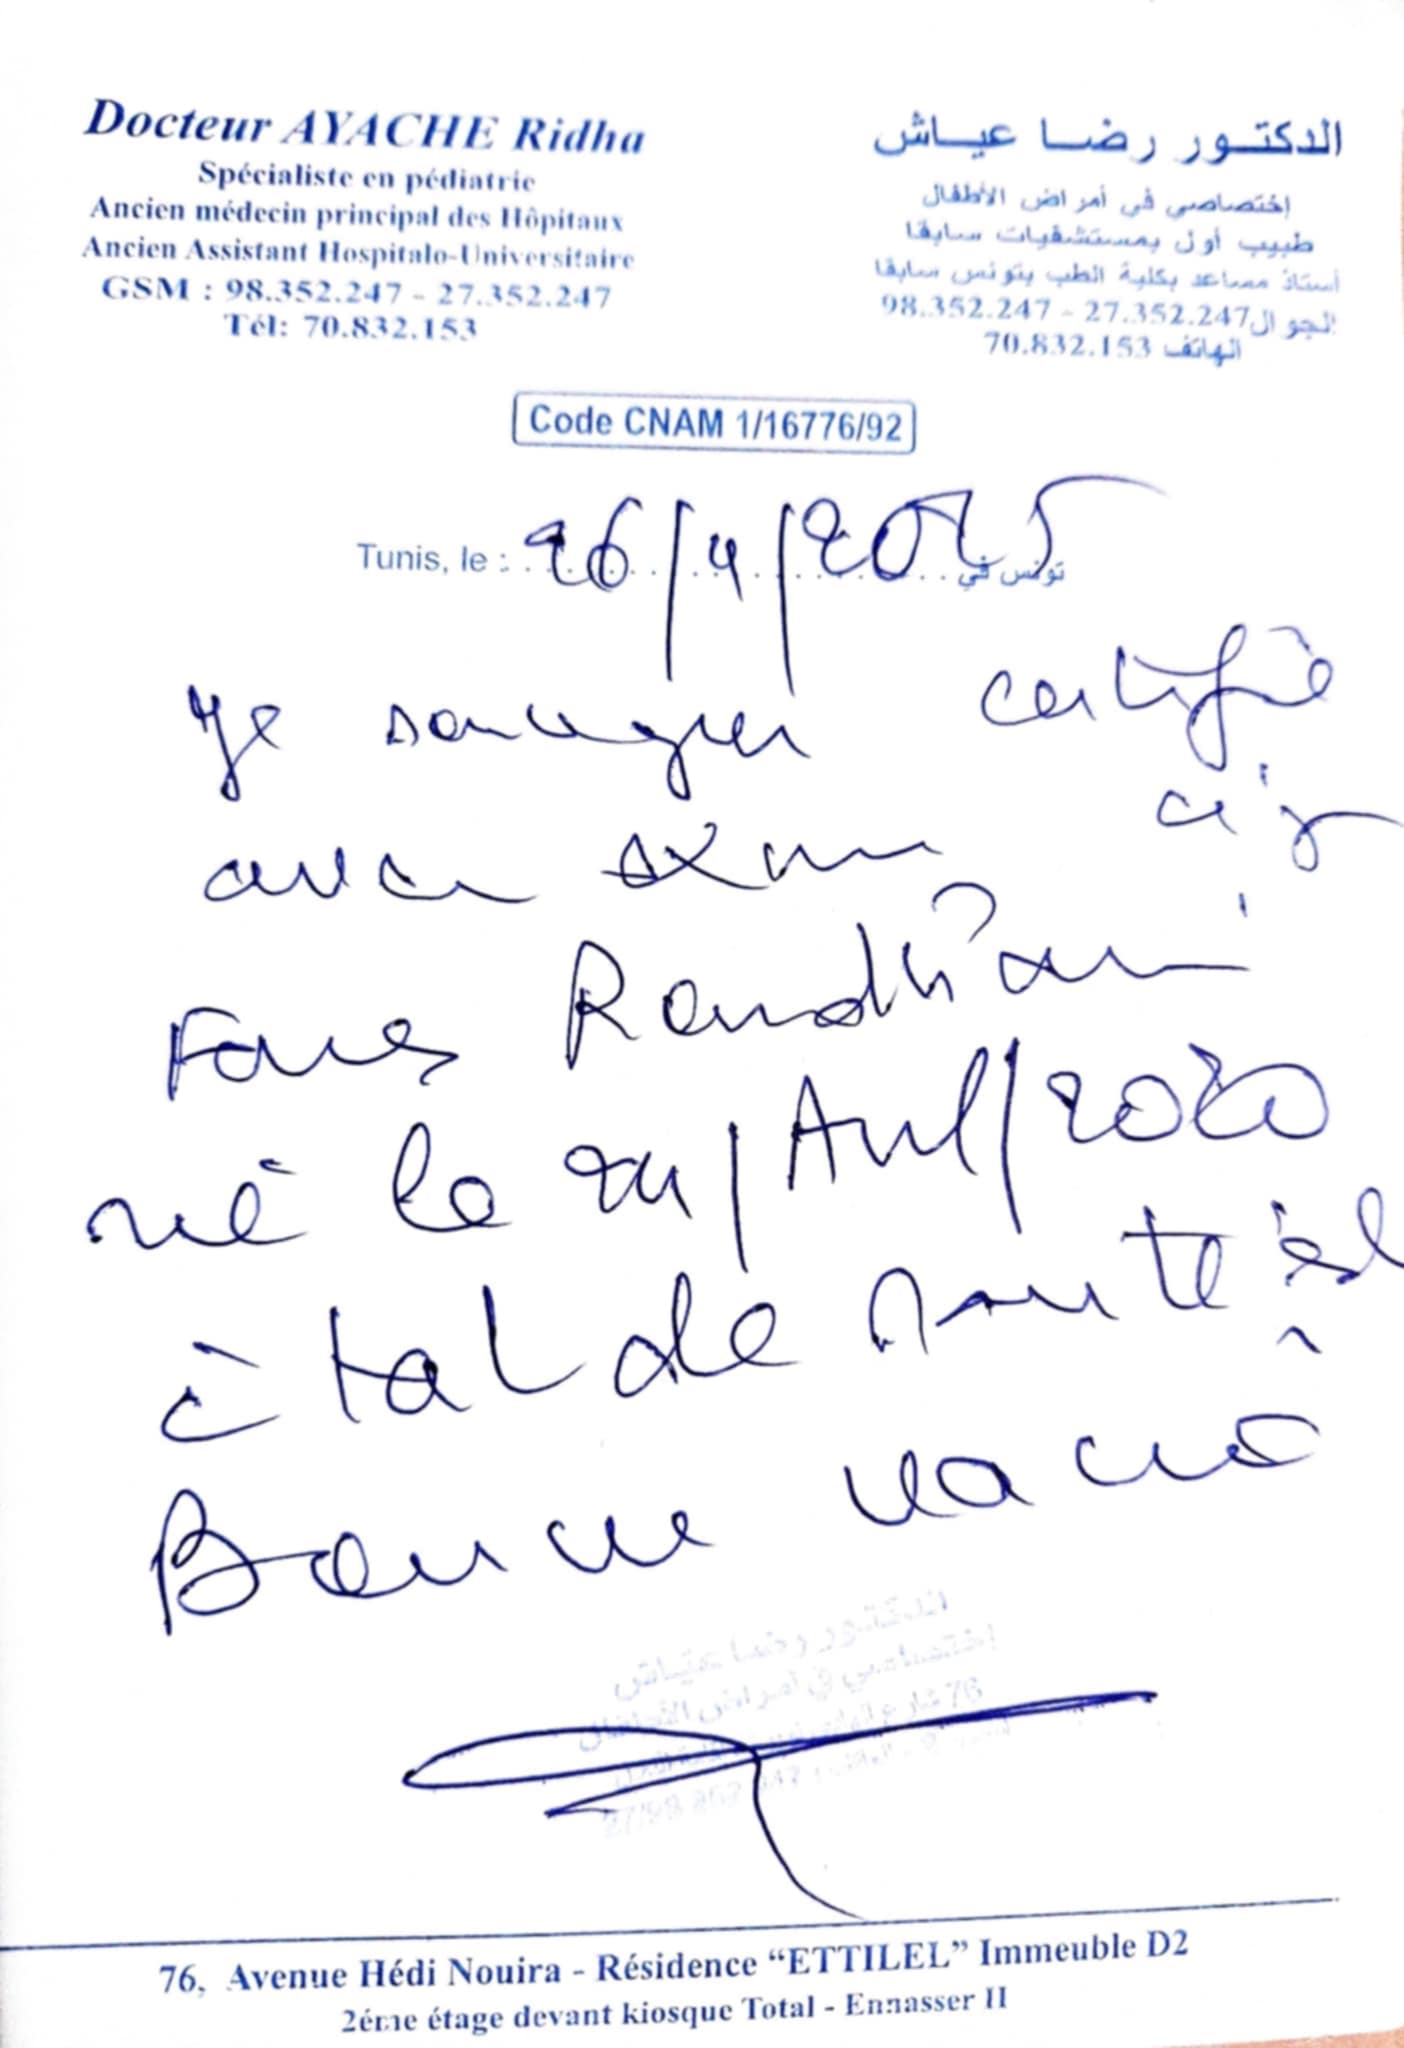 Docteur AYACHE Ridha
Spécialiste en pédiatrie
Ancien médecin principal des Hôpitaux
Ancien Assistant Hospitalo-Universitaire
GSM : 98.352.247 - 27.352.247
Tél: 70.832.153
الدكتور رضا عياش
إختصاصي في أمراض الأطفال
طبيب أول بمستشفيات سابقا
أستاذ مساعد بكلية الطب بتونس سابقا
الجوال 98.352.247 - 27.352.247
الهاتف 70.832.153
Code CNAM 1/16776/92
Tunis, le : 26/4/2025 تونس في
Je certifie
avoir
Fares
né le 24/Avril/2020
état de santé est
Bonne
الدكتور رضا عياش
إختصاصي في أمراض الأطفال
76 شارع
76, Avenue Hédi Nouira - Résidence “ETTILEL” Immeuble D2
2éme étage devant kiosque Total - Ennasser II